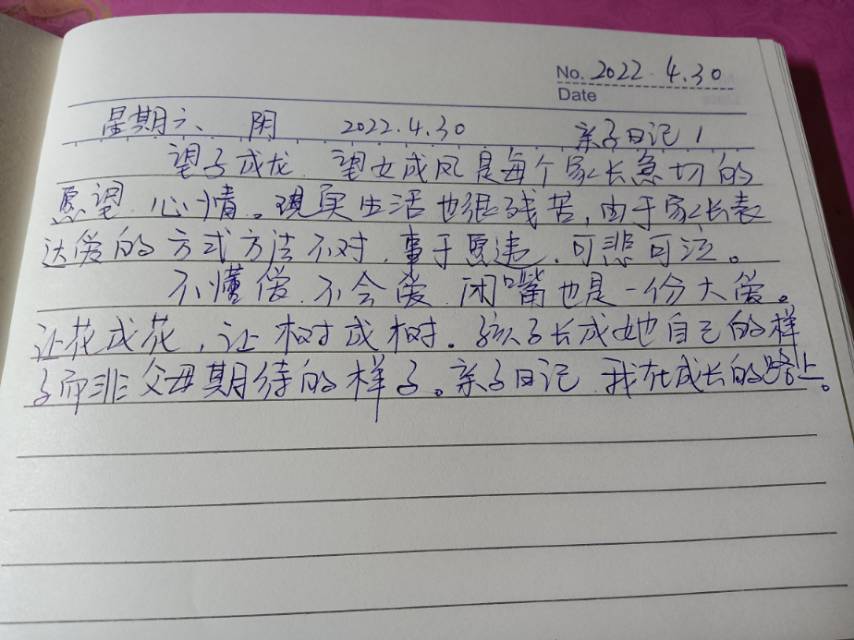 No. 2022.4.30
Date
星期六、 阴 2022.4.30 亲子日记1
望子成龙 望女成凤是每个家长急切的
愿望 心情。现实生活也很残苦,由于家长表
达爱的方式方法不对,事于愿违,可悲可泣。
不懂爱 不会爱 闭嘴也是一份大爱。
让花成花,让树成树。孩子长成她自己的样
子而非父母期待的样子。亲子日记 我在成长的路上。